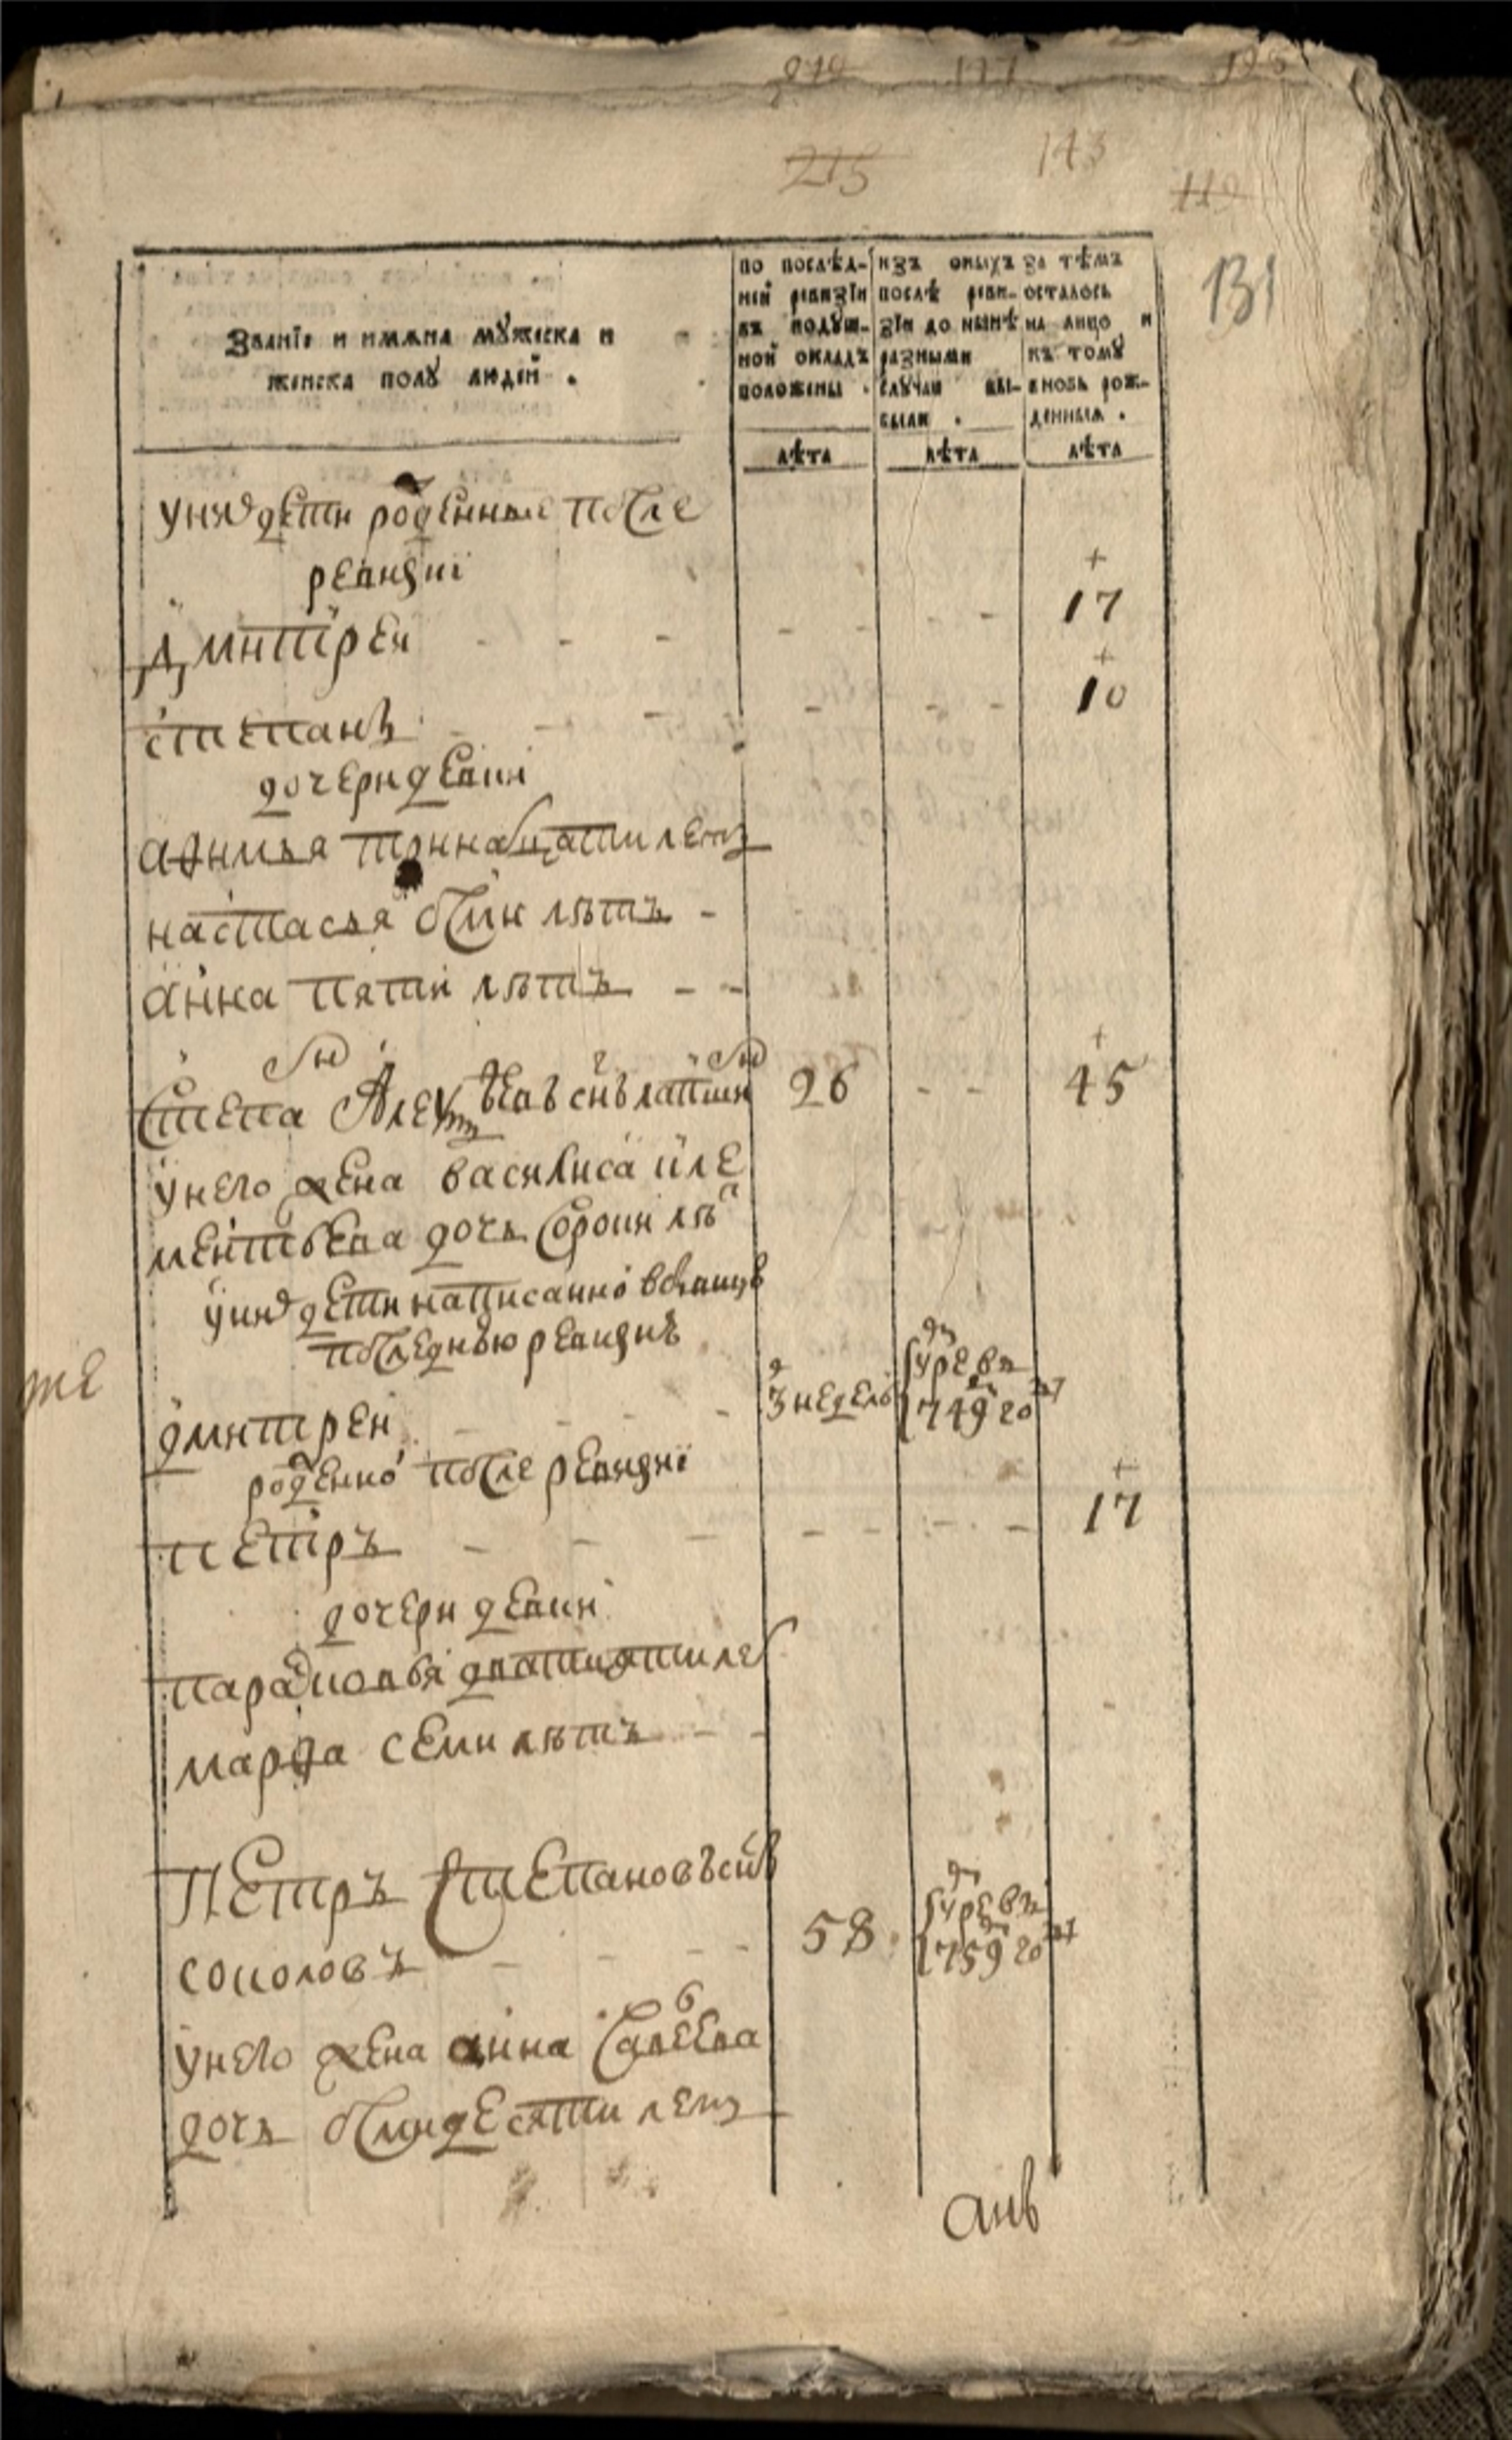 215 143 119
131
Званїе и имѧна мꙋжеска и
женска полꙋ людей .
по послѣд-
ней ревизїи
въ подꙋш-
ной окладъ
положены .
изъ оныхъ
послѣ реви-
зїи до нынѣ
разными
слꙋчаи вы-
были .
за тѣмъ
осталось
на лицо и
къ томꙋ
вновь рож-
денныѧ .
лѣта лѣта лѣта
у них дети рожденные после
ревизиї
Дмитрей - - - 17
степанъ - - - 10
дочери девки
афимья тринатцати летъ
настасья осми лѣтъ -
анна пяти лѣтъ - -
Степан Алексѣевъ снъ лапшин 26 - - 45
у него жена василиса кле
ментьева дочь сорока лѣт
у них дети написанной в бывшую
последнюю ревизию
дмитрей - 3 недель умре в
1749 году
рожденной после ревизиї
петръ - - - 17
дочери девки
парасковья дватцати лет
марфа семи лѣтъ - -
Петръ Степановъ снъ
соколовъ - - - 58 умре в
1759 году
у него жена анна
дочь осмидесяти летъ